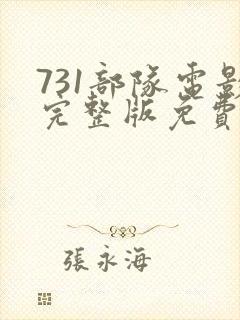 731部隊電影
完整版免費
張永海